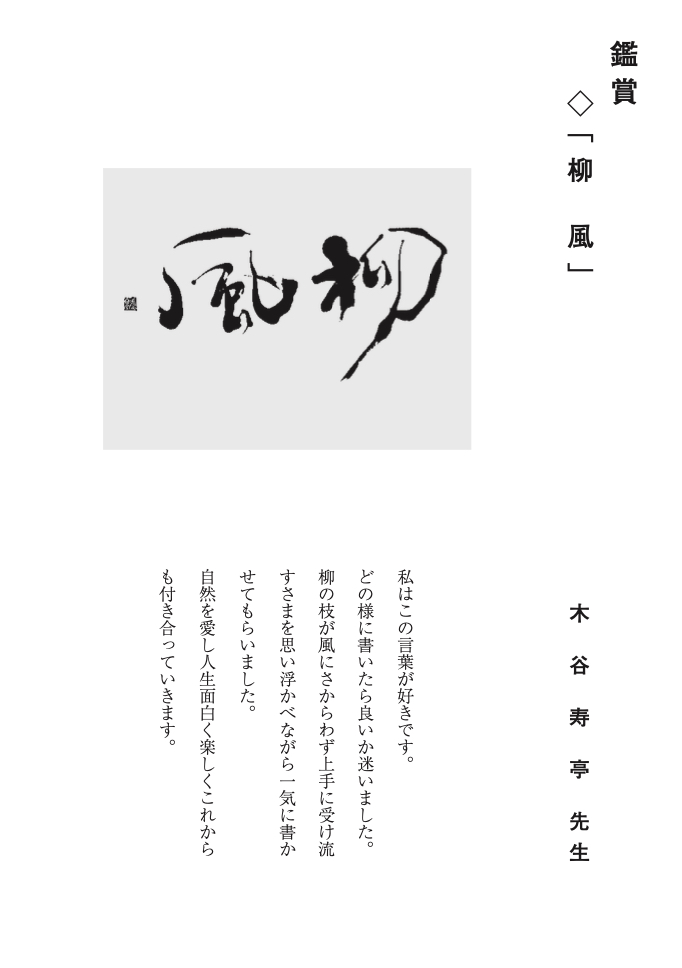 鑑賞
◇「柳　風」
柳風
木谷寿亭先生
私はこの言葉が好きです。
どの様に書いたら良いか迷いました。
柳の枝が風にさからわず上手に受け流
すさまを思い浮かべながら一気に書か
せてもらいました。
自然を愛し人生面白く楽しくこれから
も付き合っていきます。